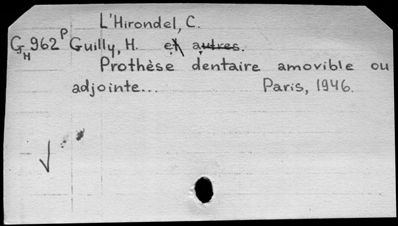 L'Hirondel, C.
GH962P Guilly, H. et autres.
Prothèse dentaire amovible ou
adjointe... Paris, 1946.